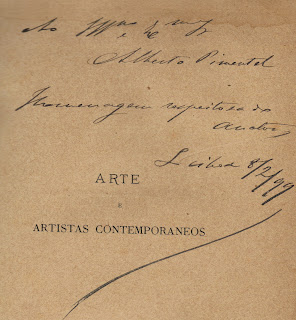 Ao Illmo e Exmo Sr
Alberto Pimentel
Homenagem respeitosa do
Auctor
Lisboa 8/2/99
ARTE
E
ARTISTAS CONTEMPORANEOS